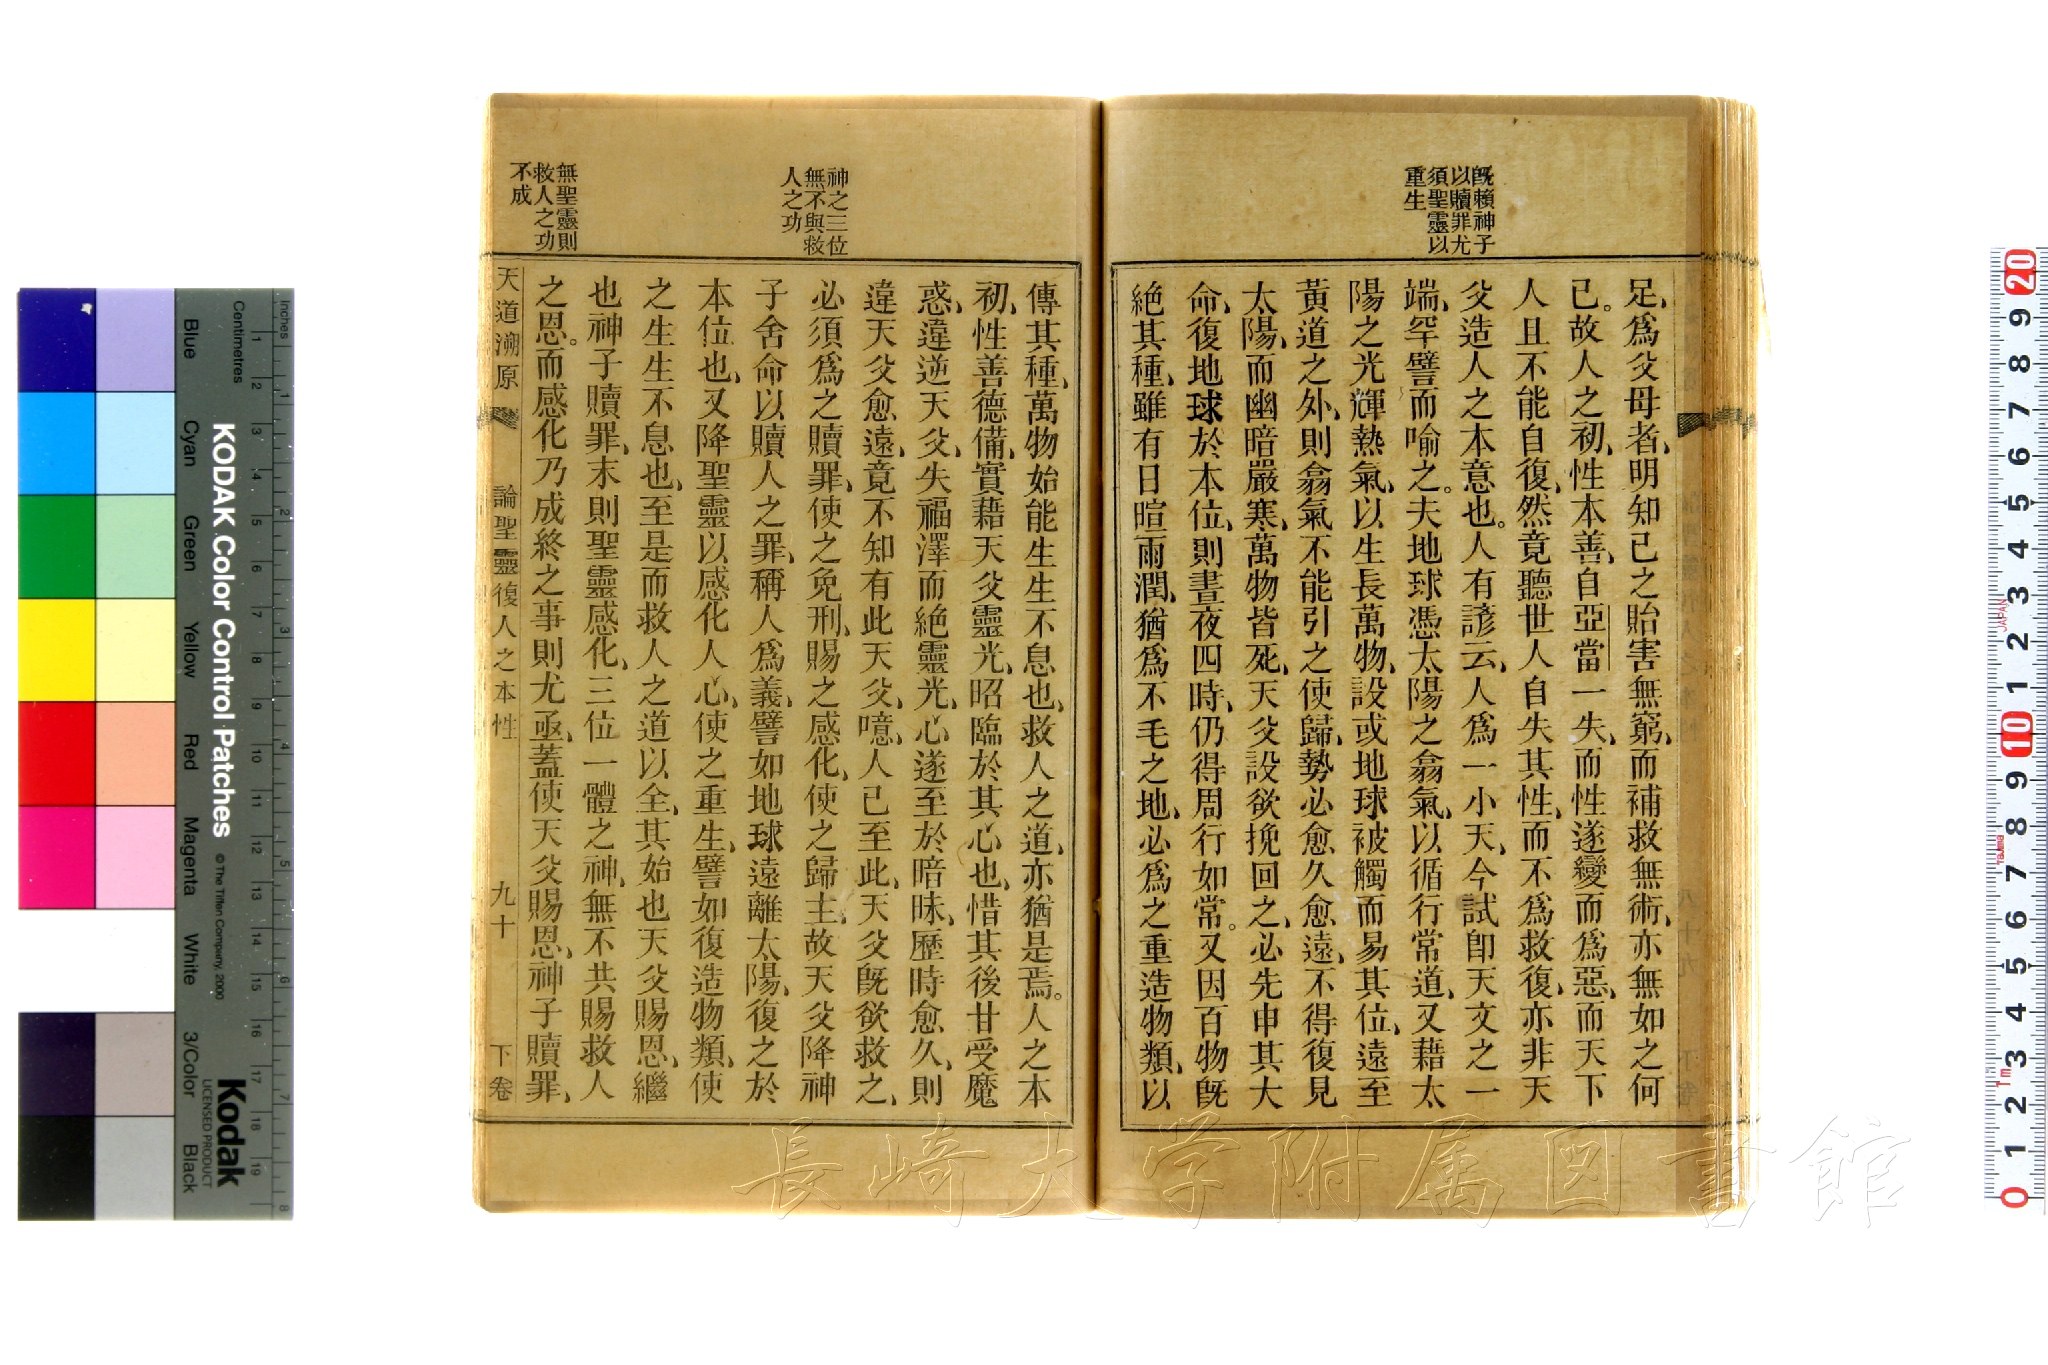 既賴神子
以贖罪尤
須聖靈以
重生
足、爲父母者、明知己之貽害無窮、而補救無術、亦無如之何
已。故人之初、性本善、自亞當一失、而性遂變而爲惡、而天下
人且不能自復、然竟聽世人自失其性、而不爲救復、亦非天
父造人之本意也。人有諺云、人爲一小天、今試卽天文之一
端、罕譬而喻之。夫地球憑太陽之翕氣、以循行常道、又藉太
陽之光輝熱氣、以生長萬物、設或地球被觸而易其位、遠至
黃道之外、則翕氣不能引之使歸、勢必愈久愈遠、不得復見
太陽、而幽暗嚴寒、萬物皆死、天父設欲挽回之、必先申其大
命、復地球於本位、則晝夜四時、仍得周行如常。又因百物旣
絕其種、雖有日暄雨潤、猶爲不毛之地、必爲之重造物類、以
神之三位
無不與救
人之功
無聖靈則
救人之功
不成
傳其種、萬物始能生生不息也、救人之道、亦猶是焉。人之本
初、性善德備、實藉天父靈光、昭臨於其心也、惜其後甘受魔
惑、違逆天父、失福澤而絕靈光、心遂至於暗昧、歷時愈久、則
違天父愈遠、竟不知有此天父、噫、人已至此、天父旣欲救之、
必須爲之贖罪、使之免刑、賜之感化、使之歸主、故天父降神
子舍命以贖人之罪、稱人爲義、譬如地球遠離太陽、復之於
本位也、又降聖靈以感化人心、使之重生、譬如復造物類、使
之生生不息也、至是而救人之道以全、其始也天父賜恩、繼
也神子贖罪、末則聖靈感化、三位一體之神、無不共賜救人
之恩。而感化乃成終之事、則尤亟、蓋使天父賜恩、神子贖罪、
天道溯原 論聖靈復人之本性 九十 下卷
長崎大学附属図書館
KODAK Color Control Patches © The Tiffen Company, 2000
Kodak
LICENSED PRODUCT
Inches
Centimetres
Blue
Cyan
Green
Yellow
Red
Magenta
White
3/Color
Black
1 2 3 4 5 6 7 8 9 10 11 12 13 14 15 16 17 18 19
1 2 3 4 5 6 7 8
0 1 2 3 4 5 6 7 8 9 10 1 2 3 4 5 6 7 8 9 20
JAPAN